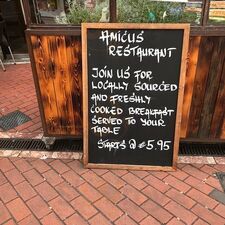 AMICUS
RESTAURANT
JOIN US FOR
LOCALLY SOURCED
AND FRESHLY
COOKED BREAKFAST
SERVED TO YOUR
TABLE
STARTS @ £5.95